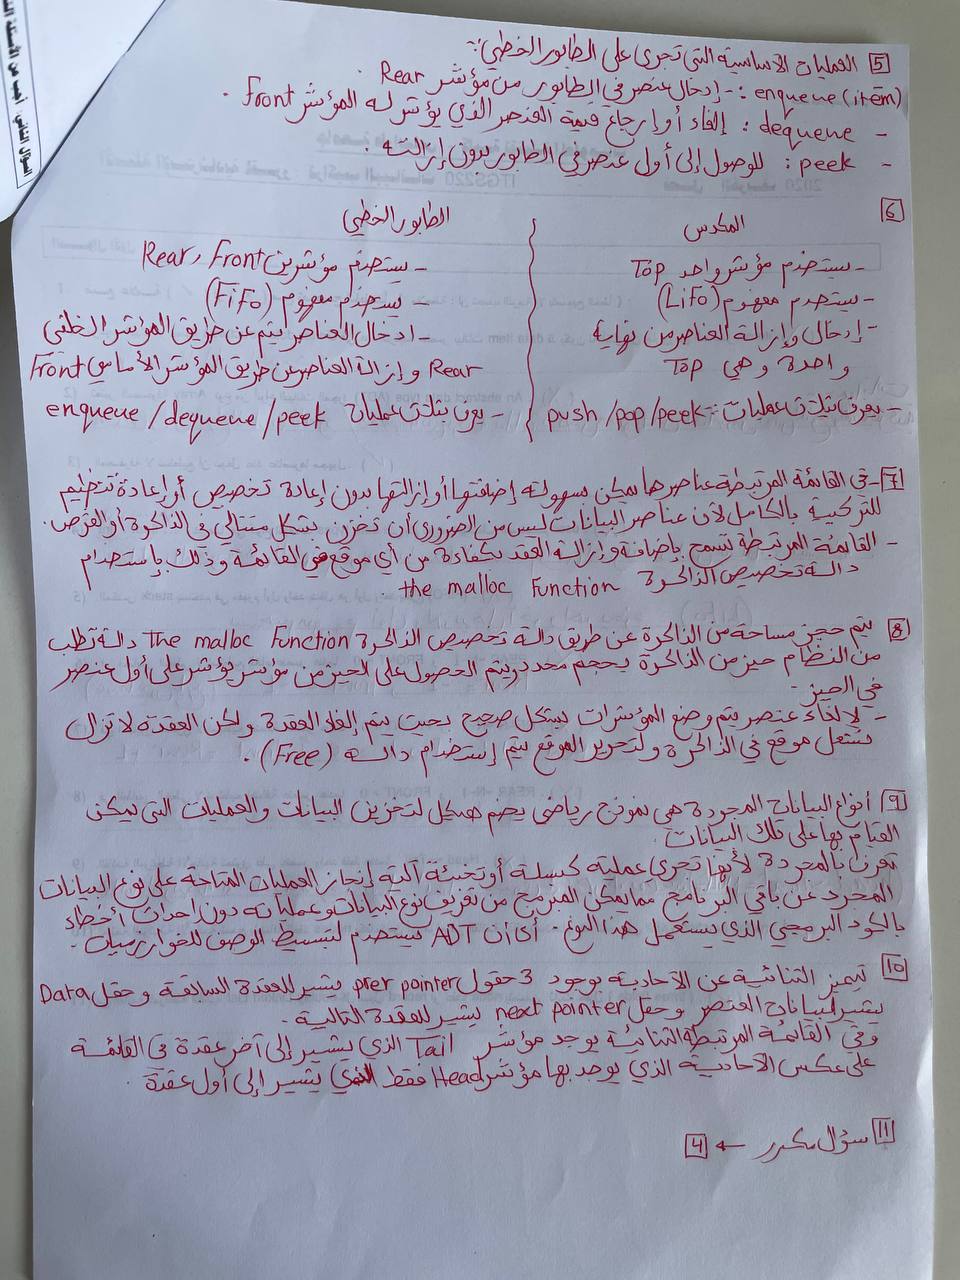 5 العمليات الاساسية التي تجرى على الطابور الخطي:-
enqueue (item) :- إدخال عنصر في الطابور من مؤشر Rear.
- dequeue : إلغاء أو إرجاع قيمة العنصر الذي يؤشر له المؤشر Front.
- peek : للوصول إلى أول عنصر في الطابور بدون إزالته.
6
المكدس
- يستخدم مؤشر واحد Top
- يستخدم مفهوم (LiFo)
- إدخال وإزالة العناصر من نهاية
واحدة وهي Top
- يعرف بثلاث عمليات:- push /pop /peek
الطابور الخطي
- يستخدم مؤشرين Rear, Front
- يستخدم مفهوم (FiFo)
- ادخال العناصر يتم عن طريق المؤشر الخلفي
Rear وإزالة العناصر عن طريق المؤشر الأمامي Front
- يعرف بثلاث عمليات enqueue /dequeue /peek
7 - في القائمة المرتبطة عناصرها يمكن بسهولة إضافتها أو إزالتها بدون إعادة تخصيص أو إعادة تنظيم
للتركيبة بالكامل لأن عناصر البيانات ليس من الضروري أن تخزن بشكل متتالي في الذاكرة أو القرص.
- القائمة المرتبطة تسمح بإضافة وإزالة العقد بكفاءة من أي موقع في القائمة وذلك بإستخدام
دالة تخصيص الذاكرة the malloc Function.
8 يتم حجز مساحة من الذاكرة عن طريق دالة تخصيص الذاكرة The malloc Function دالة تطلب
من النظام حيز من الذاكرة بحجم محدد ويتم الحصول على الحيز من مؤشر يؤشر على أول عنصر
في الحيز.
- لإلغاء عنصر يتم وضع المؤشرات بشكل صحيح بحيث يتم إلغاء العقدة ولكن العقدة لا تزال
تشغل موقع في الذاكرة ولتحرير الموقع يتم إستخدام دالة (Free).
9 أنواع البيانات المجردة هي نموذج رياضي يضم هيكل لتخزين البيانات والعمليات التي يمكن
القيام بها على تلك البيانات.
تعرف بالمجردة لأنها تجرى عملية كبسلة أو تخبئة آلية إنجاز العمليات المتاحة على نوع البيانات
المجرد عن باقي البرنامج مما يمكن المبرمج من تعريف نوع البيانات وعملياته دون إحداث أخطاء
بالكود البرمجي الذي يستعمل هذا النوع. أي أن ADT تستخدم لتبسيط الوصف للخوارزميات.
10 تتميز الثنائية عن الأحادية بوجود 3 حقول prer pointer يشير للعقدة السابقة وحقل Data
يشير لبيانات العنصر وحقل next pointer يشير للعقدة التالية.
وفي القائمة المرتبطة الثنائية يوجد مؤشر Tail الذي يشير إلى آخر عقدة في القائمة
على عكس الأحادية الذي يوجد بها مؤشر Head فقط الذي يشير إلى أول عقدة.
11 سؤال مكرر ← 4